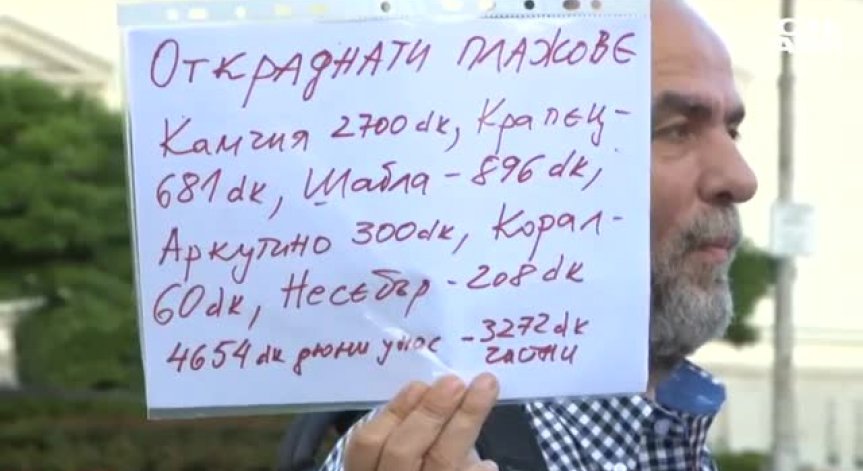 Откраднати плажове
Камчия 2700dk, Крапец-
681dk, Шабла - 896dk,
Аркутино 300dk, Корал-
60dk, Несебър - 208dk
4654dk дюни унос - 3272dk
частни